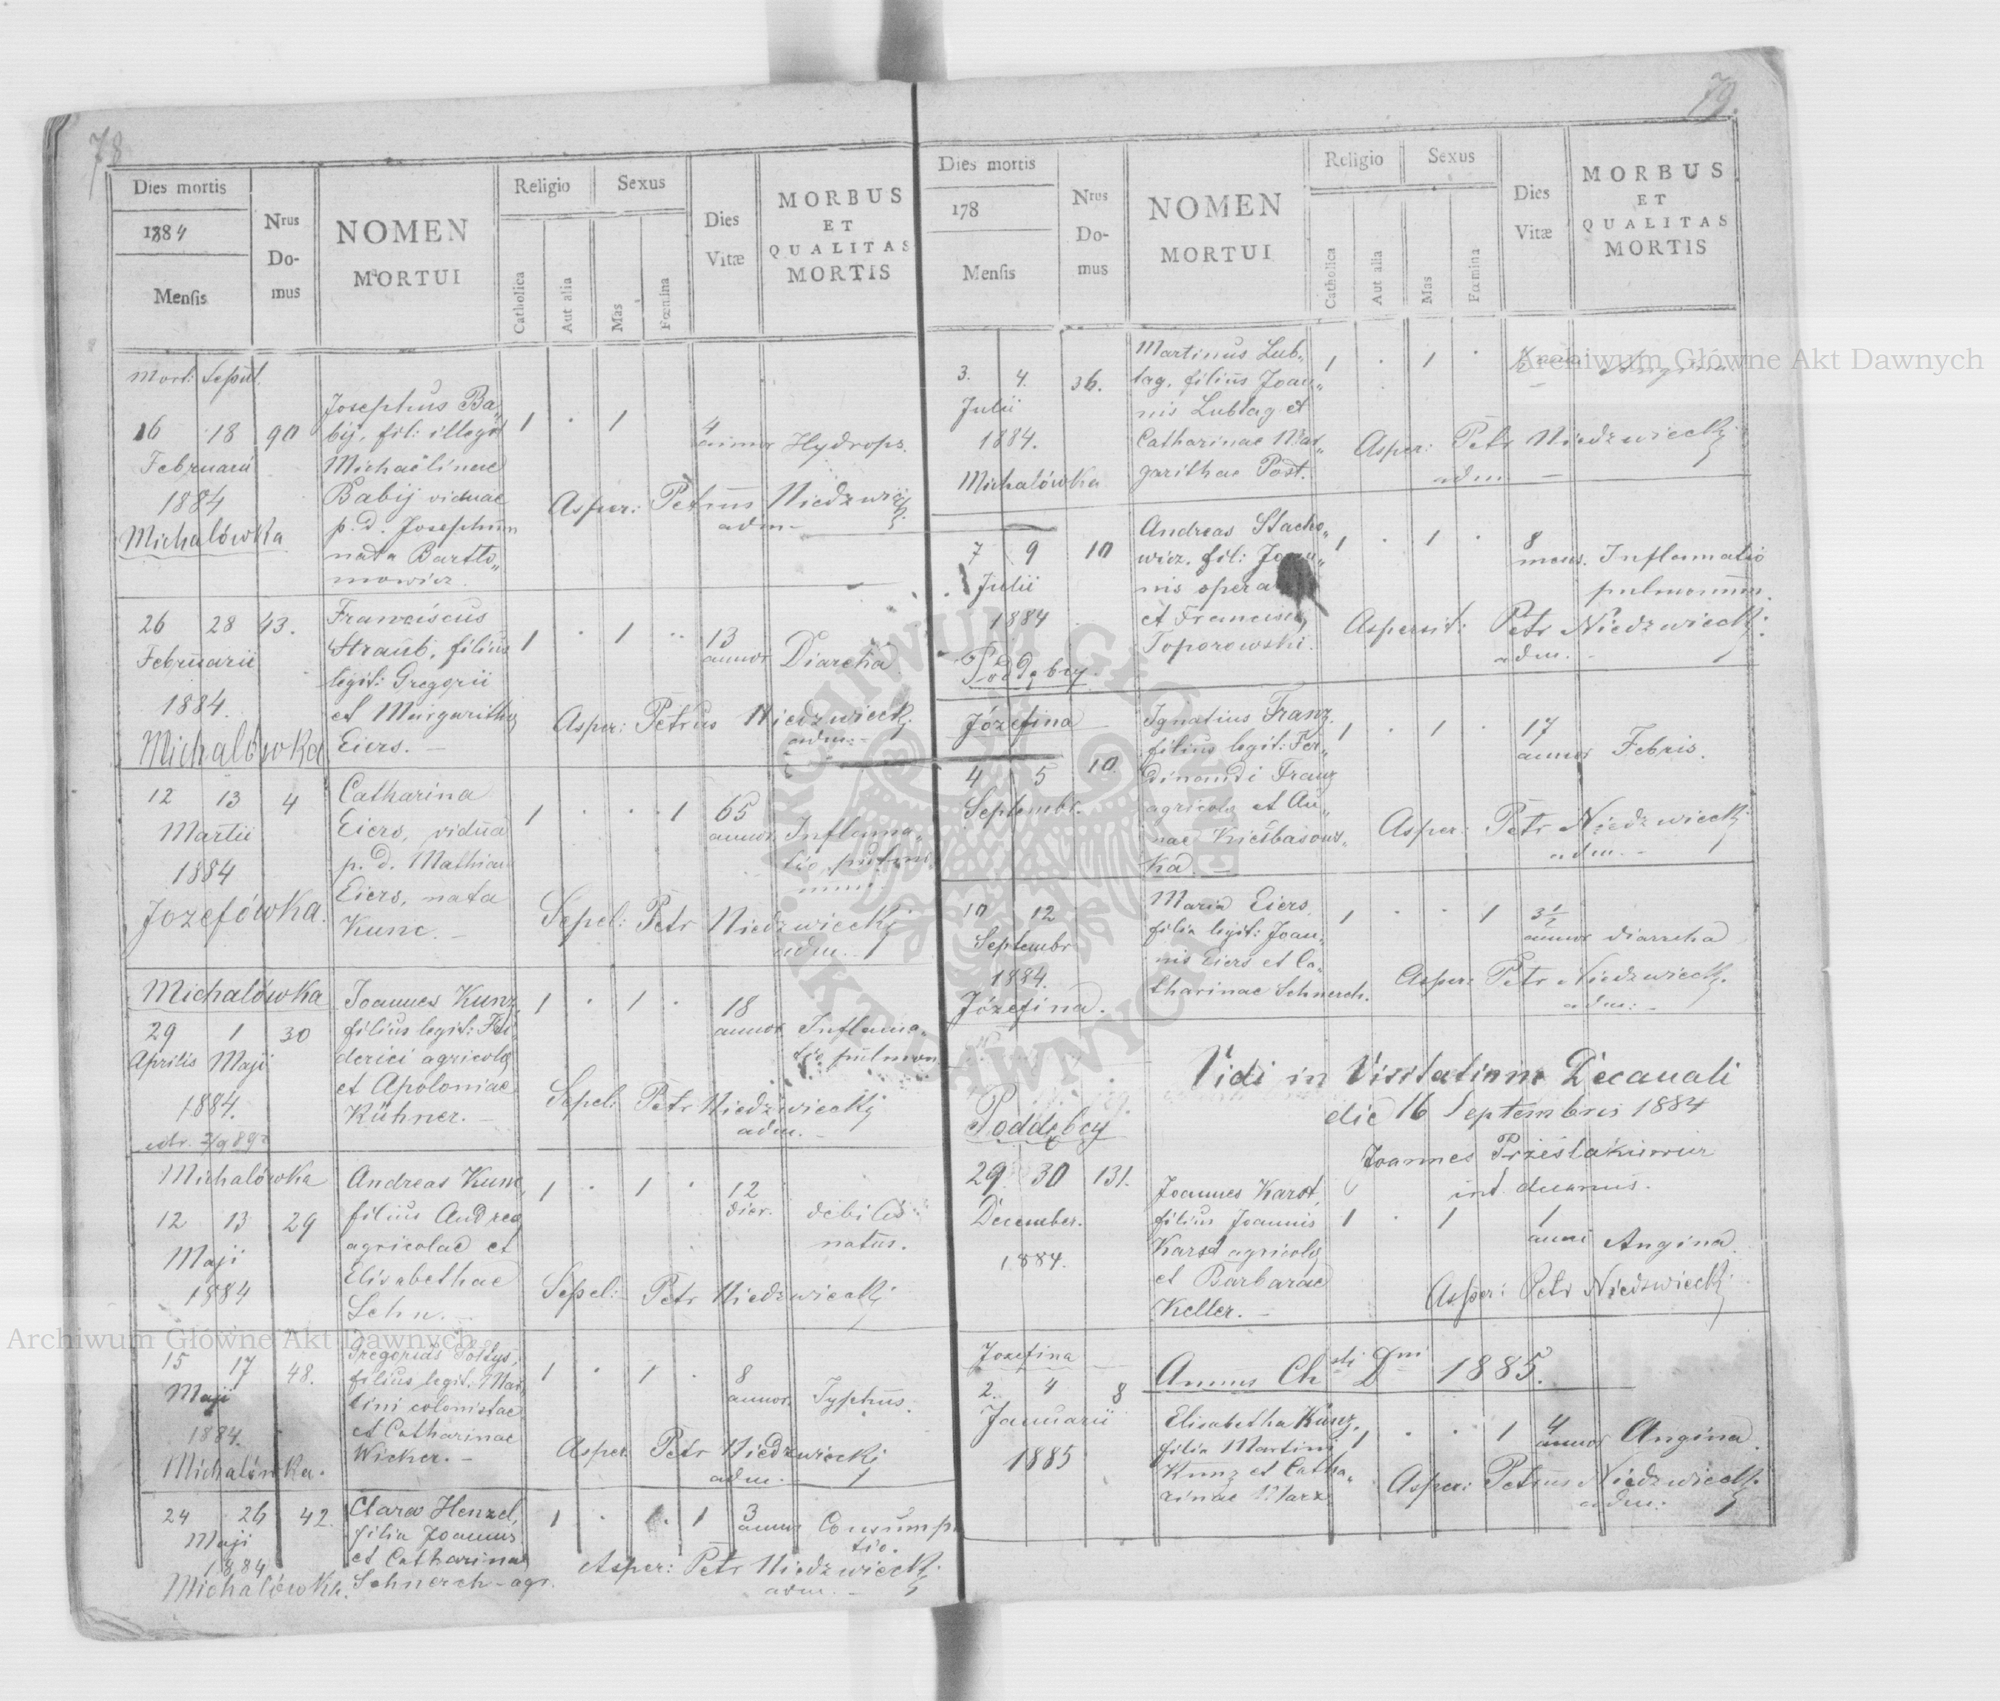 78
Dies mortis
1884
Mensis
Nrus
Do-
mus
NOMEN
MORTUI
Religio
Catholica
Aut alia
Sexus
Mas
Fœmina
Dies
Vitæ
MORBUS
ET
QUALITAS
MORTIS
Mort: Sepult.
16 18 90
Februarii
1884
Michalówka
Josephus Ba„
bij, fil: illegit
Michaelinae
Babij viduae
p. d. Josephum
nata Bartło„
mowicz.
1 · 1
4
annor Hydrops.
Asper: Petrus Niedzwiecki
adm
26 28 43.
Februarii
1884.
Michalówka
Franciscus
Straub, filius
legit: Gregorii
et Margaritha
Eiers. —
1 · 1 ·
13
annor Diarchä
Asper: Petrus Niedzwiecki
adm: —
12 13 4
Martii
1884
Jozefówka.
Catharina
Eiers, vidua
p. d. Mathiam
Eiers, nata
Kunc. —
1 · · 1
65
annor Inflama„
tio pulmo
Sepel: Petr Niedzwiecki
adm.
Michalówka
29 1 30
Aprilis Maji
1884.
Joannes Kunz,
filius legit: Fri
derici agricola
et Apoloniae
Kühner. —
1 · 1 ·
18
annor Inflama„
tio pulmon
Sepel: Petr Niedzwiecki
adm. —
Michalówka
12 13 29
Maji
1884
Andreas Kunc,
filius Andrea
agricolae et
Elisabethae
Lehn. —
1 · 1 ·
12
dier. debilis
natus.
Sepel: Petr Niedzwiecki
15 17 48.
Maji
1884.
Michalówka.
Gregorius Soltys,
filius legit. Mar
tini colonistae
et Catharinae
Wicker. —
1 · 1 ·
8
annor Typhus.
Asper Petr Niedzwiecki
adm.
24 26 42.
Maji
1884
Michalówka.
Clara Henzel,
filia Joannis
et Catharinae
Schnerch — agr.
1 · 1
3
annor Consump
tio.
Asper: Petr Niedzwiecki
adm. —
79.
Dies mortis
178
Mensis
Nrus
Do-
mus
NOMEN
MORTUI
Religio
Catholica
Aut alia
Sexus
Mas
Fœmina
Dies
Vitæ
MORBUS
ET
QUALITAS
MORTIS
3. 4. 36.
Julii
1884.
Michalówka
Martinus Lub„
tag, filius Joan„
nis Lubtag et
Catharinae Mar„
garithae Post.
1 · 1 ·
Angina
Asper: Petr Niedzwiecki
adm —
7 9 10
Julii
1884
Poddębcy.
Andreas Stacho„
wicz, fil: Joan„
nis opera
et Francisca
Toporowski.
1 · 1 ·
8
mens. Inflamatio
pulmonum.
Aspersit: Petr Niedzwiecki
adm. —
Józefina
4 5 10
Septembr.
Ignatius Franz
filius legit: Fer„
dinandi Franz
agricola et An„
nae
ka —
1 · 1 ·
17
annor Febris.
Asper: Petr Niedzwiecki
adm. —
10 12
Septembr
1884.
Józefina.
Maria Eiers,
filia legit: Joan„
nis Eiers et Ca„
tharinae Schnerch.
1 · · 1
3½
annor diarrcha
Asper: Petr Niedzwiecki.
adm: —
Vidi in Visitatione Decanali
die 16 Septembris 1884
Joannes
int. decanus.
Poddębcy
29 30 131.
December.
1884.
Joannes Karst,
filius Joannis
Karst agricola
et Barbarae
Keller. —
1 · 1
1
anni Angina.
Asper: Petr Niedzwiecki
Annus Chsti Dni 1885.
Jozefina
2. 4 8
Januarii
1885
Elisabetha Kunz,
filia Martini
Kunz et Catha„
rinae Marx
1 · · 1
4
annor Angina.
Asper: Petrus Niedzwiecki
adm:
Archiwum Główne Akt Dawnych
Archiwum Główne Akt Dawnych
ARCHIWUM GŁÓWNE AKT DAWNYCH